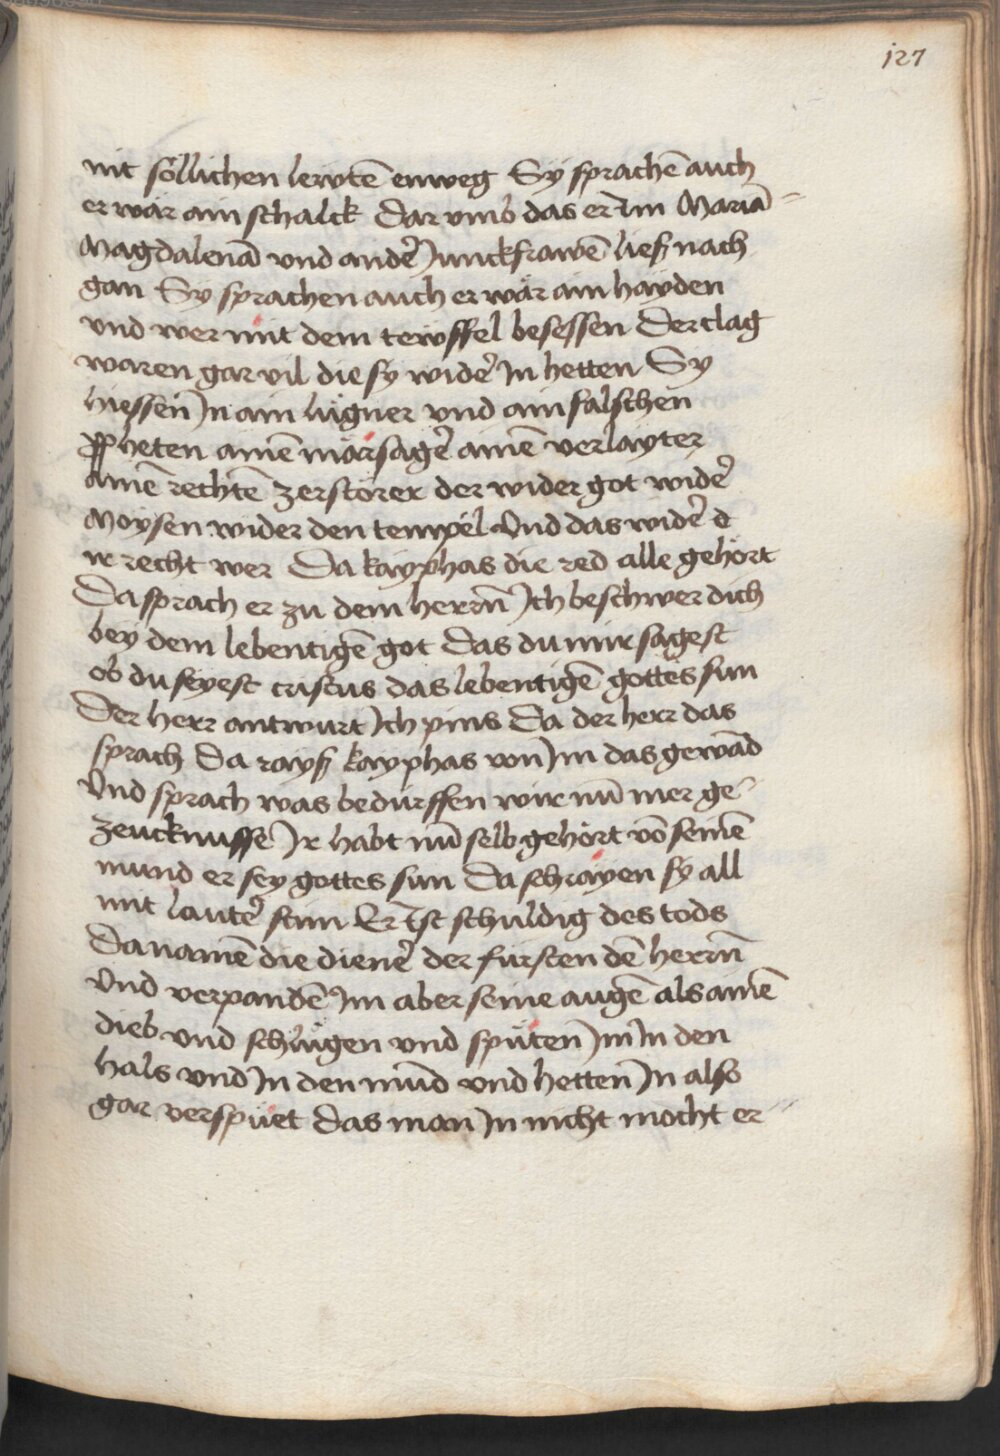 127
nit söllichen lewtē enweg Sy sprachē auch
er wär ain schalck Dar vmb das er Im Mariā
Magdalenā vnd andeʳ Junckfrawē ließ nach
gan Sy sprachen auch er wär ain hayden
vnd wer mit dem tewffel besessen Der clag
waren gar vil die sy wideʳ In hetten Sy
hiessen In ain lugner vnd ain falschen
ꝓpheten ainē warsageʳ ainē verlayter
ainē rechtē zerstörer der wider got wideʳ
Moysen wider den tempel Vnd das wideʳ d
ir recht wer Da kayphas die red alle gehört
Da sprach er zu dem herrn̄ Ich beschwer dich
bey dem lebentigē got das du mir sagest
ob du seyest cristus das lebentigē gottes sun
Der herr antwurt Ich pins Da der herr das
sprach Da rayß kayphas von Im das gewād
Vnd sprach was bedürffen wir nū mer ge
zeucknusse Ir habt nū selb gehört vō seinē
mund er sey gottes sun Da schrayen sy all
mit lauteʳ stim Er Ist schuldig des tods
Da namē die dieneʳ der fürsten dē herrn̄
Vnd verpandē Im aber seine augē als ainē
dieb vnd schlugen vnd sputen Im In den
hals vnd In den mūd vnd hetten In also
gar verspuet das man In nicht mocht er